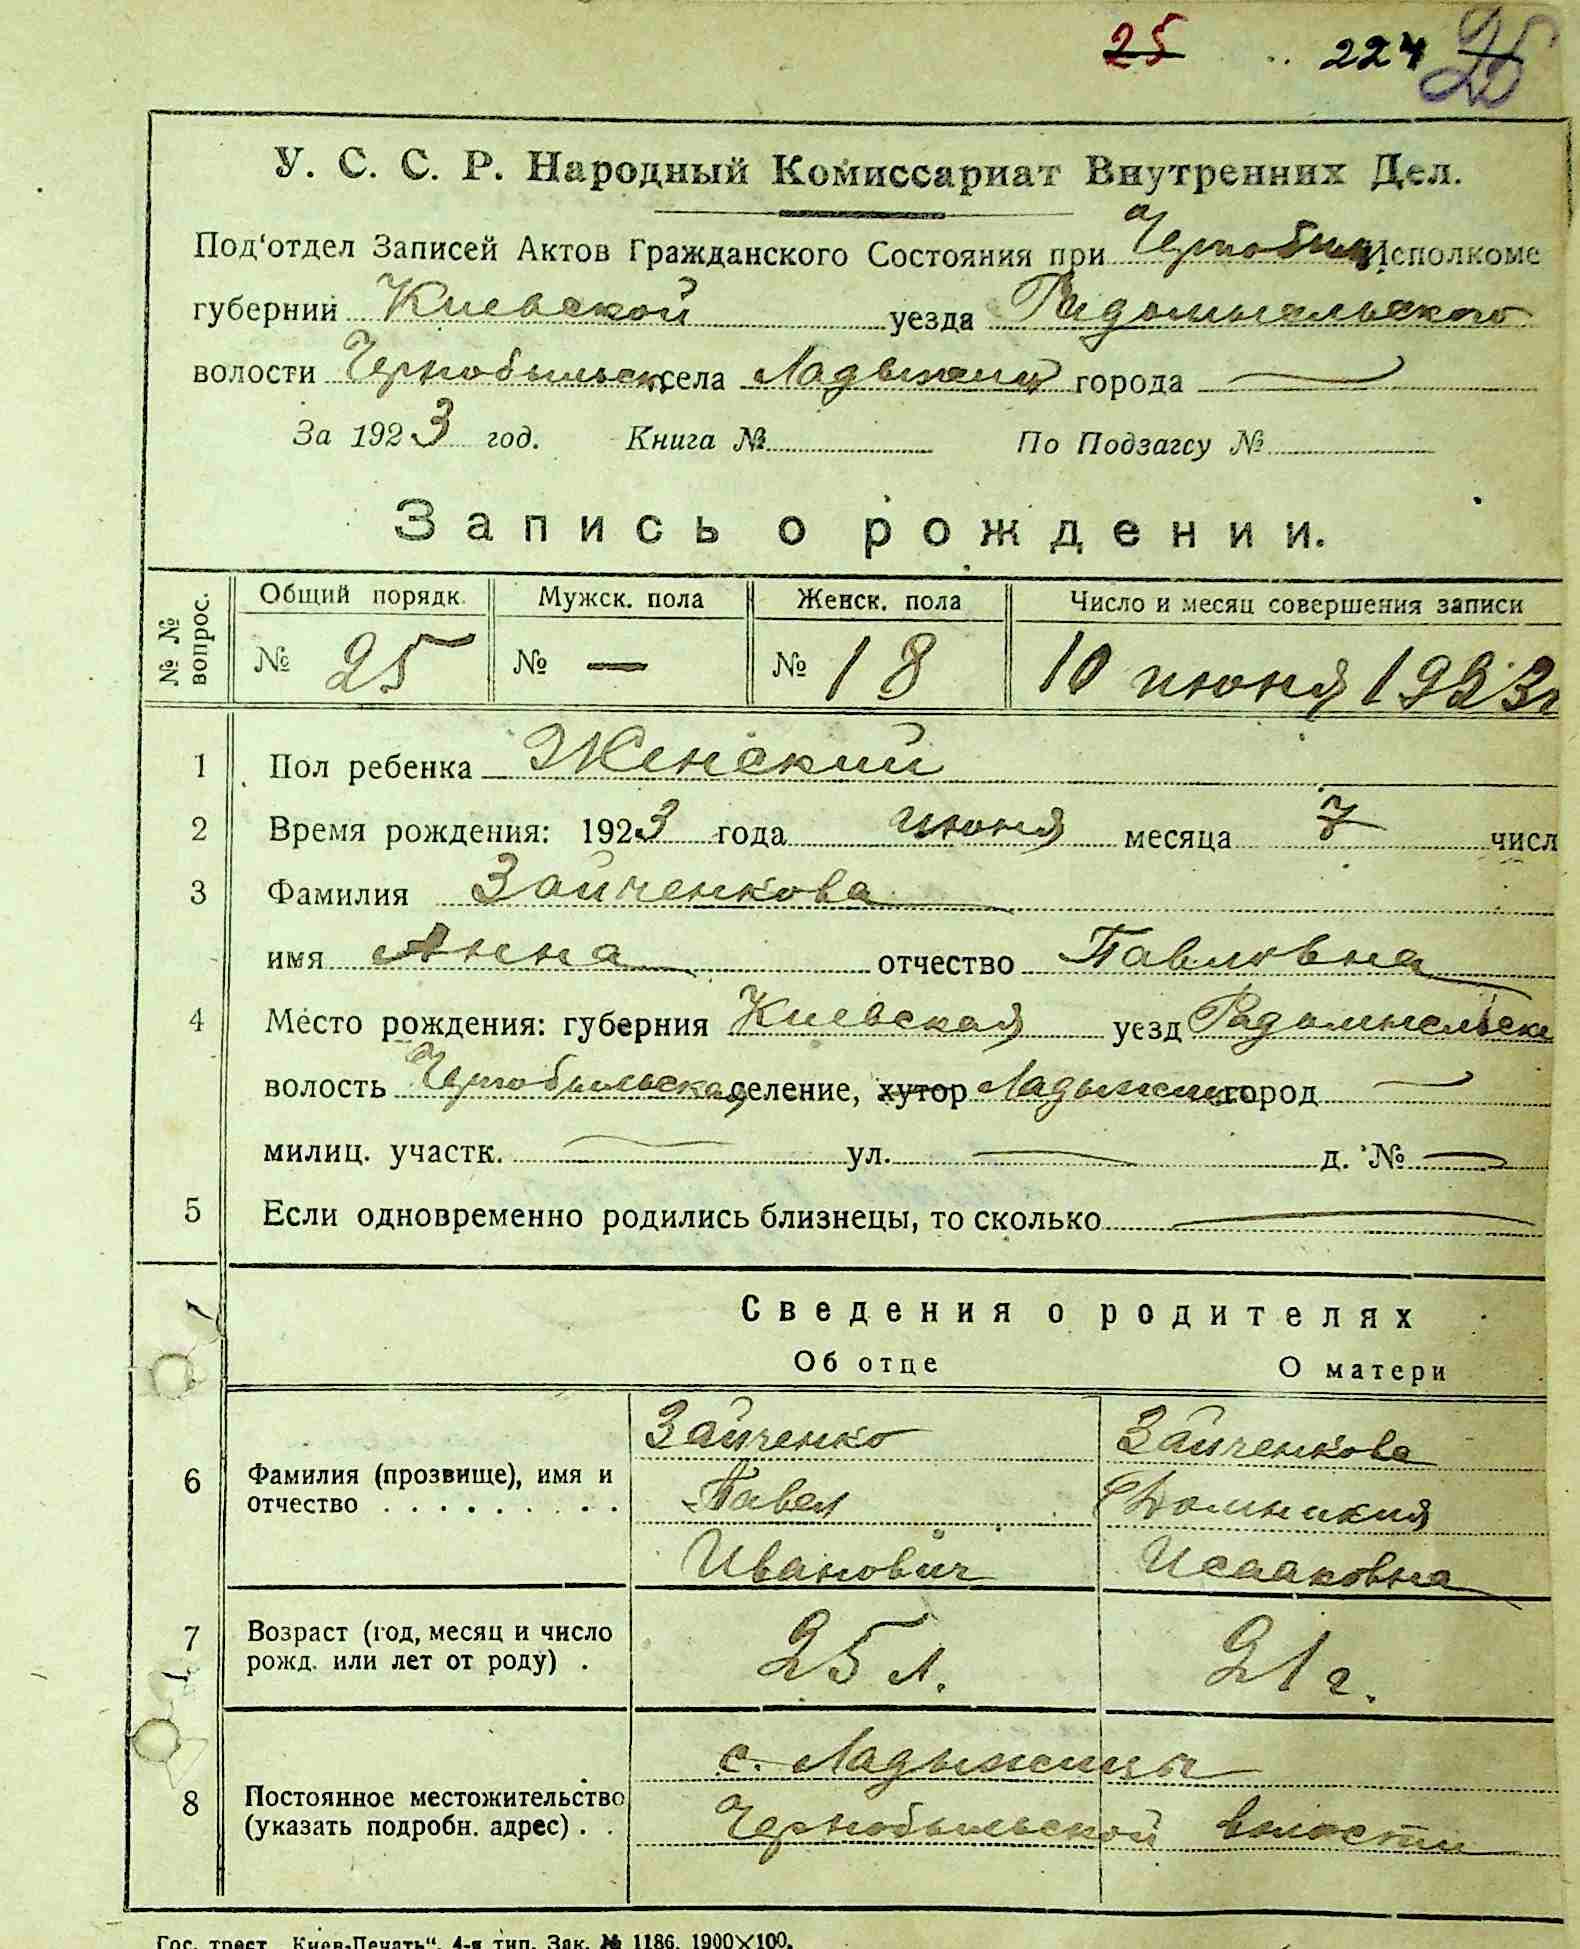 25 224 25
У. С. С. Р. Народный Комиссариат Внутренних Дел.
Под'отдел Записей Актов Гражданского Состояния при Чернобыл Исполкоме
губернии Киевской уезда Радомысльского
волости Чернобыльск села Ладыжичи города —
За 1923 год. Книга № По Подзагсу №
Запись о рождении.
№ № вопрос. Общий порядк. Мужск. пола Женск. пола Число и месяц совершения записи
№ 25 № — № 18 10 июня 1923 г
1 Пол ребенка Женский
2 Время рождения: 1923 года июня месяца 7 числ
3 Фамилия Зайченкова
имя Анна отчество Павловна
4 Место рождения: губерния Киевская уезд Радомысльск
волость Чернобыльская селение, хутор Ладыжичи город —
милиц. участк. — ул. — д. № —
5 Если одновременно родились близнецы, то сколько —
Сведения о родителях
Об отце О матери
Зайченко Зайченкова
6 Фамилия (прозвище), имя и отчество . . . . . . . . . Павел Домникия
Иванович Исааковна
7 Возраст (год, месяц и число рожд. или лет от роду) . 25 л. 21 г.
с. Ладыжичи
8 Постоянное местожительство (указать подробн. адрес) . . Чернобыльской волости
Гос. трест „Киев-Печать“, 4-я тип. Зак. № 1186. 1900×100.